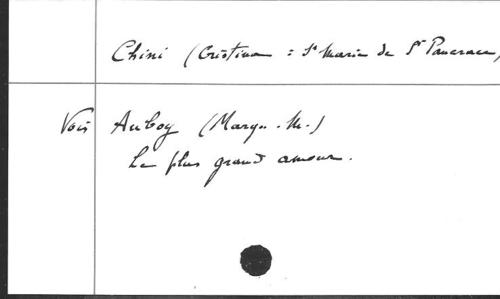 Chini (Cristina = Sr Marie de St Pancrace)
Voir Auboy (Marg.. M.)
Le plus grand amour.